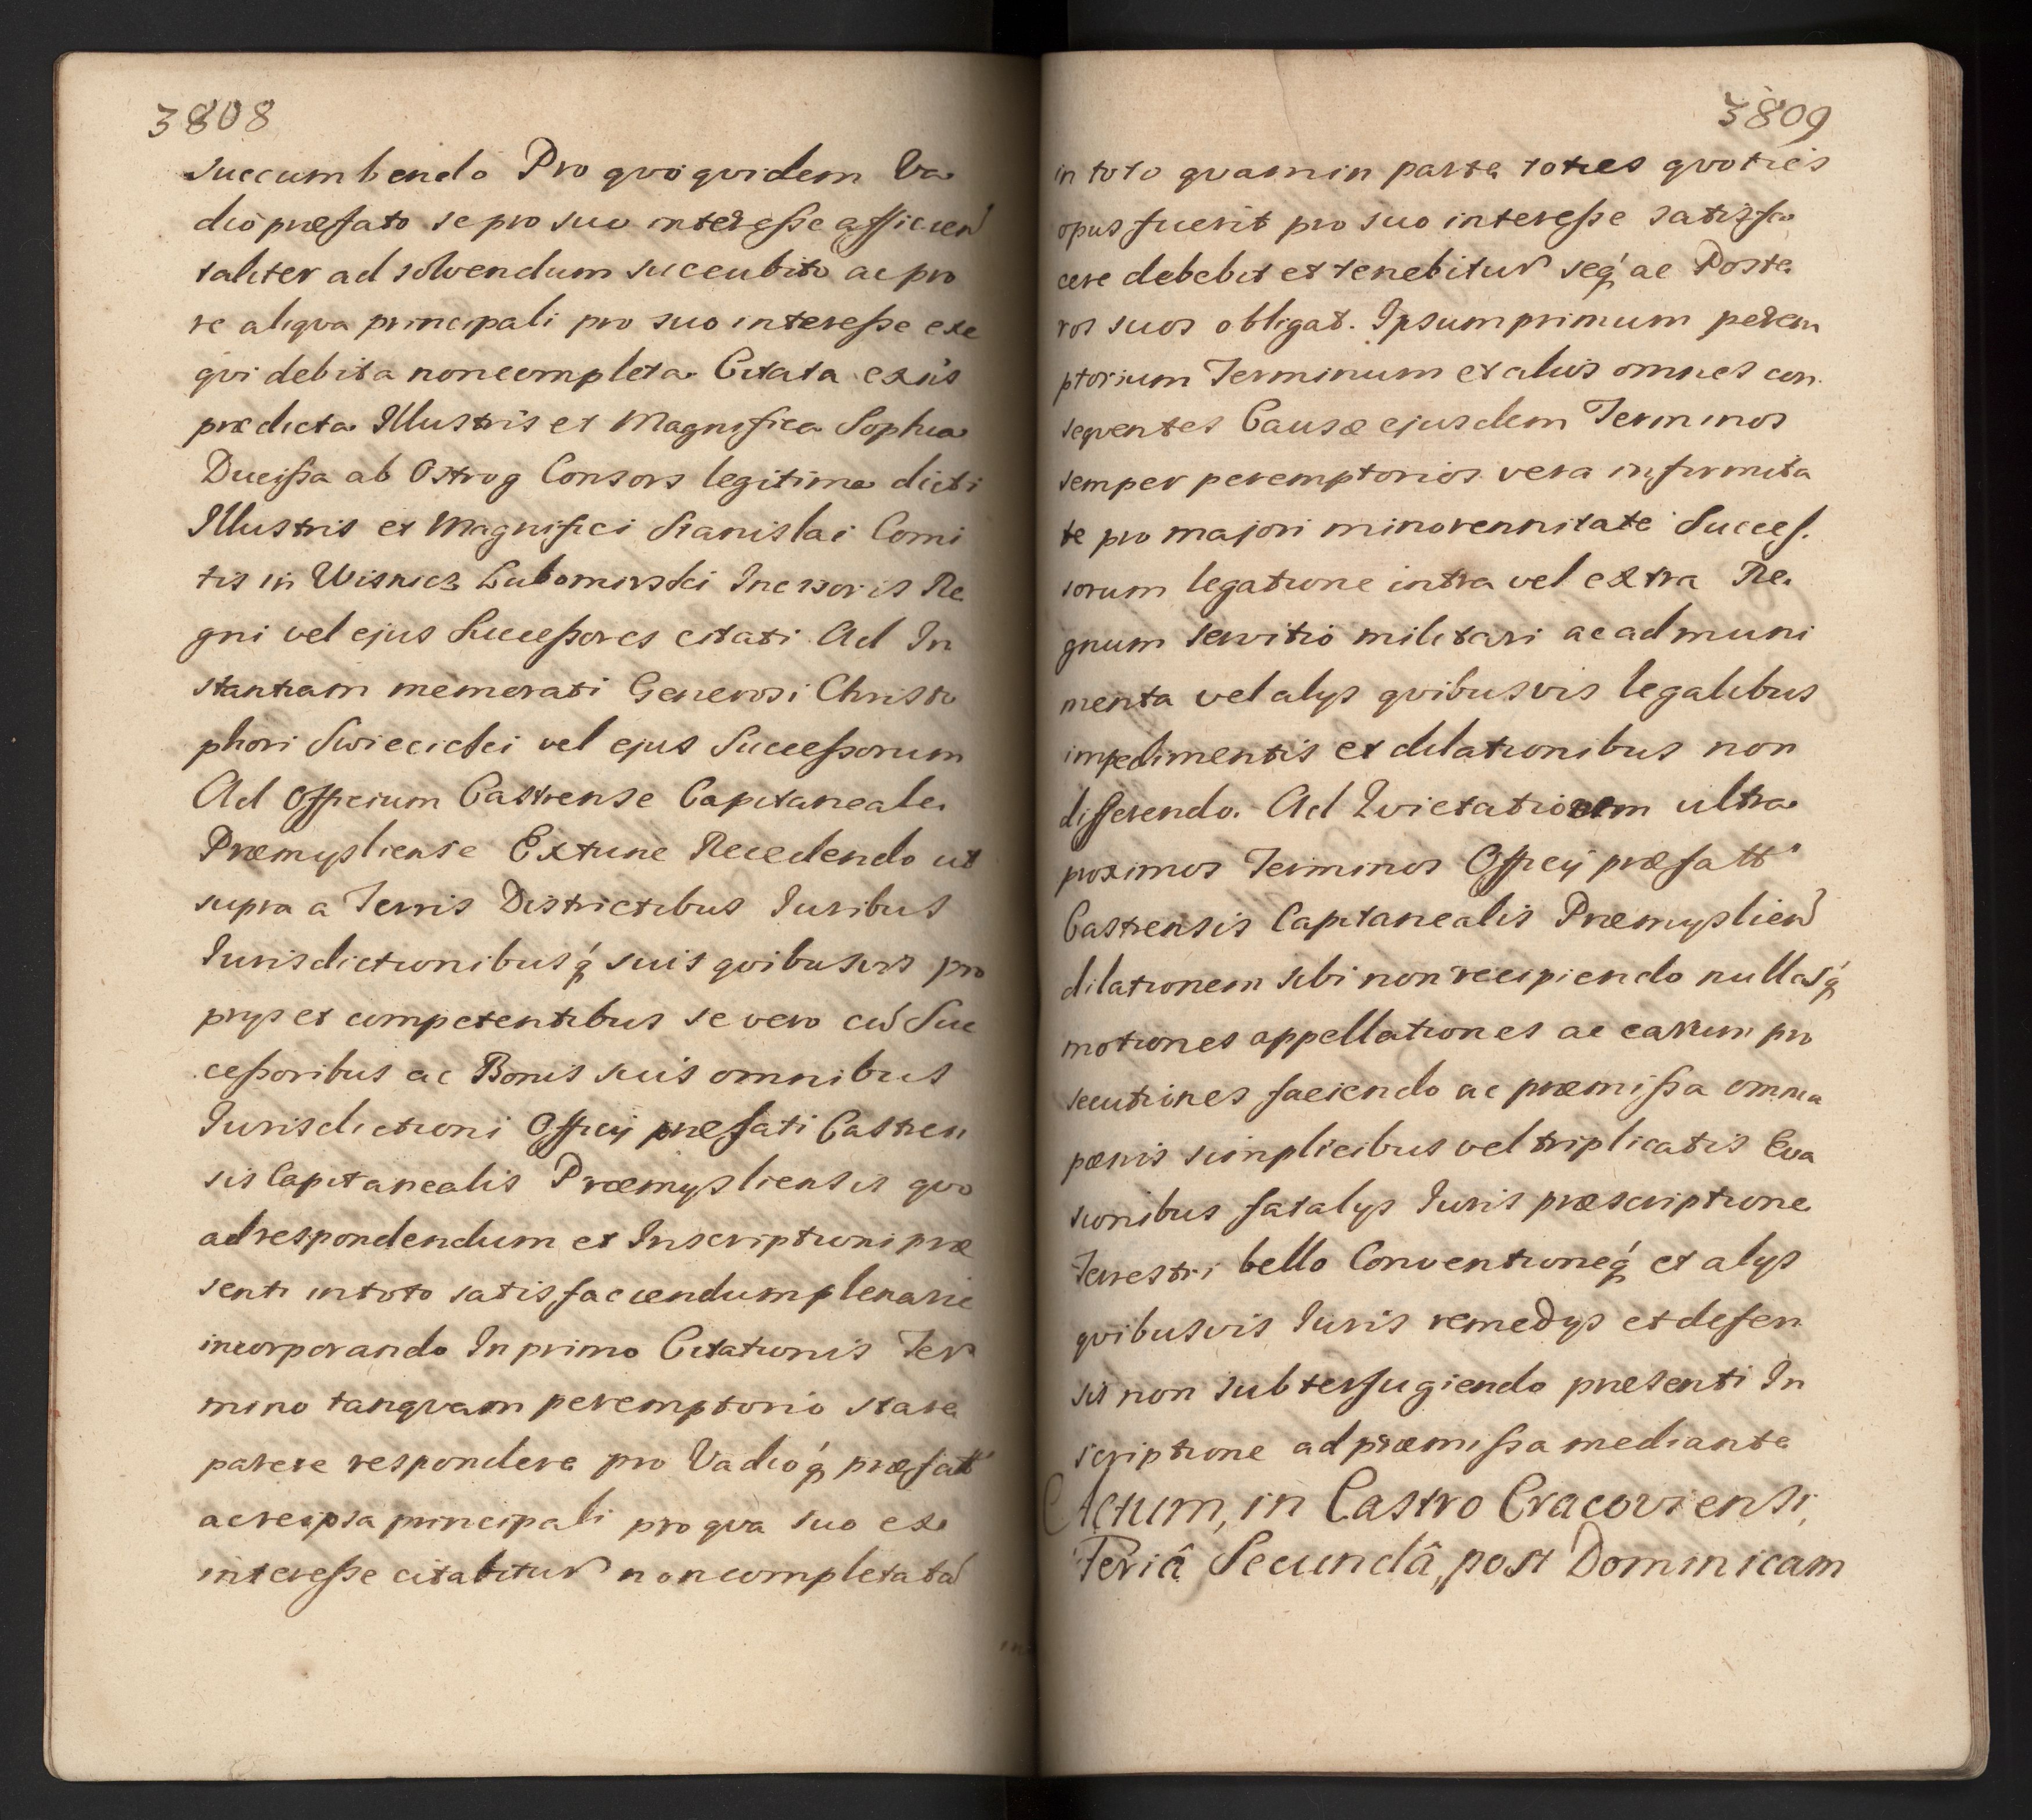 3808
succumbendo Pro quoquidem Va
dio præfato se pro suo interesse efficien
taliter ad solvendum succubito ac pro
re aliqva principali pro suo interesse exe
qvi debita noncompleta Citata exiis
prædicta Illustris et Magnifica Sophia
Ducissa ab Ostrog Consors legitima dicti
Illustris et Magnifici Stanislai Comi
tis in Wisnicz Lubomirski Incisoris Re
gni vel ejus Successores citati Ad In
stantiam memorati Generosi Christo
phori Swiecicki vel ejus Successorum
Ad Officium Castrense Capitaneale
Præmysliense Extunc Recedendo ut
supra a Terris Districtibus Iuribus
Iurisdictionibusq́ suis qvibusvis pro
prys et competentibus se vero cũ Suc
cessoribus ac Bonis suis omnibus
Iurisdictioni Officy præfati Castren
sis Capitanealis Præmysliensis qvo
adrespondendum et Inscriptioni præ
senti intoto satisfaciendum plenarie
incorporando In primo Citationis Ter
mino tanqvam peremptorio stare
parere respondere pro Vadioq́ præfatt
acreipsa principali pro qva suo exe
interesse citabitur noncompletata
3809
in toto qvamin parte toties qvoties
opus fuerit pro suo interesse satisfa
cere debebit et tenebitur seq́ ac Poste
ros suos obligat. Ipsum primum perem
ptorium Terminum et alios omnes con
seqventes Causæ ejusdem Terminos
semper peremptorios vera infirmita
te pro majori minorennitate Succes.
sorum legatione intra vel extra Re.
gnum servitio militari ac ad muni
menta vel alys qvibusvis legalibus
impedimentis et dilationibus non
differendo. Ad Qvietationem ultra
proximos Terminos Officy præfatt
Castrensis Capitanealis Præmyslien
dilationem sibi non recipiendo nullasq́
motiones appellationes ac earum pro
secutiones faciendo ac præmissa omnia
pœnis simplicibus vel triplicatis Eva
sionibus fatalys Iuris præscriptione
Terrestri bello Conventioneq́ et alys
qvibusvis Iuris remedys et defen
sis non subterfugiendo præsenti In
scriptione ad præmissa mediante
Actum, in Castro Cracoviensi,
Feriâ Secundâ, post Dominicam